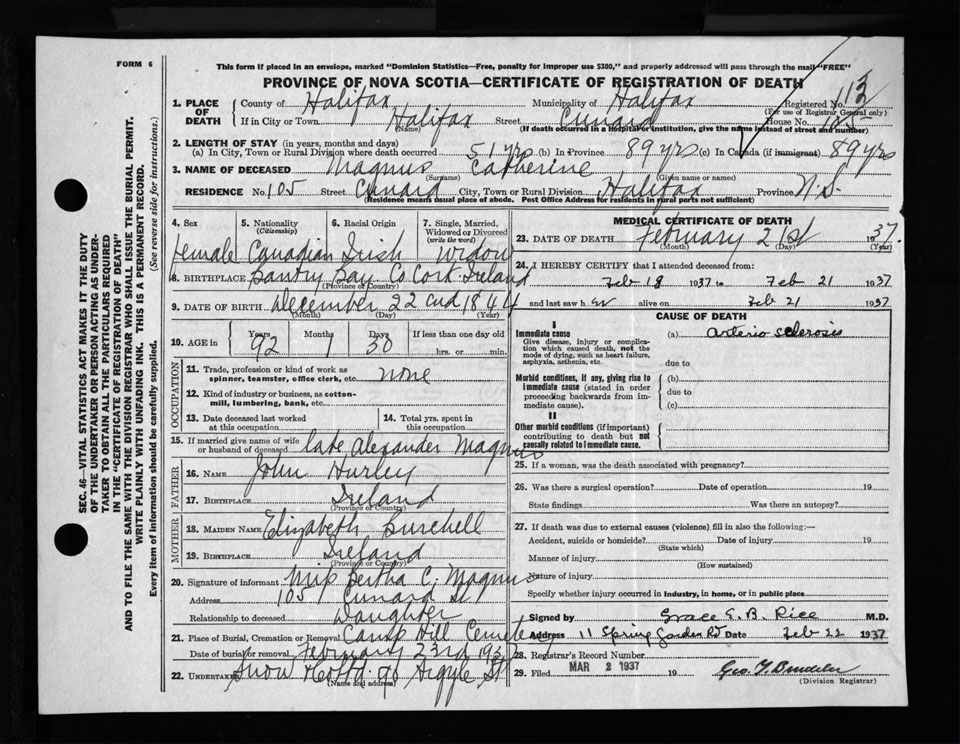 FORM 6
This form if placed in an envelope, marked "Dominion Statistics—Free, penalty for improper use $300," and properly addressed will pass through the mail "FREE"
PROVINCE OF NOVA SCOTIA—CERTIFICATE OF REGISTRATION OF DEATH
1. PLACE OF DEATH
County of Halifax Municipality of Halifax Registered No. 113
(For use of Registrar General only)
If in City or Town Halifax Street Cunard House No. 105
(Name) (If death occurred in a hospital or institution, give the name instead of street and number)
2. LENGTH OF STAY (in years, months and days)
(a) In City, Town or Rural Division where death occurred 51 yrs (b) In Province 89 yrs (c) In Canada (if immigrant) 89 yrs
3. NAME OF DECEASED Magnus Catherine
(Surname) (Given name or names)
RESIDENCE No. 105 Street Cunard City, Town or Rural Division Halifax Province N.S.
(Residence means usual place of abode. Post Office Address for residents in rural parts not sufficient)
4. Sex 5. Nationality (Citizenship) 6. Racial Origin 7. Single, Married, Widowed or Divorced (write the word)
female Canadian Irish Widow
8. BIRTHPLACE Bantry Bay Co Cork Ireland
(Province or Country)
9. DATE OF BIRTH December 22 cnd 1844
(Month) (Day) (Year)
10. AGE in Years Months Days If less than one day old
92 1 30 hrs. or min.
OCCUPATION
11. Trade, profession or kind of work as spinner, teamster, office clerk, etc. none
12. Kind of industry or business, as cotton-mill, lumbering, bank, etc.
13. Date deceased last worked at this occupation
14. Total yrs. spent in this occupation
15. If married give name of wife or husband of deceased late Alexander Magnus
FATHER
16. NAME John Hurley
17. BIRTHPLACE Ireland
(Province or Country)
MOTHER
18. MAIDEN NAME Elizabeth Burchell
19. BIRTHPLACE Ireland
(Province or Country)
20. Signature of informant Miss Bertha C. Magnus
Address 105 Cunard St.
Relationship to deceased Daughter
21. Place of Burial, Cremation or Removal Camp Hill Cemetery
Date of burial or removal February 23rd 1937
22. UNDERTAKER Snow 90 Argyle St
(Name and address)
MEDICAL CERTIFICATE OF DEATH
23. DATE OF DEATH February 21st 1937.
(Month) (Day) (Year)
24. I HEREBY CERTIFY that I attended deceased from:
Feb 18 1937 to Feb 21 1937
and last saw h er alive on Feb 21 1937
CAUSE OF DEATH
I
Immediate cause
Give disease, injury or complication which caused death, not the mode of dying, such as heart failure, asphyxia, asthenia, etc.
(a) arterio sclerosis
due to
Morbid conditions, if any, giving rise to immediate cause (stated in order proceeding backwards from immediate cause).
(b)
due to
(c)
II
Other morbid conditions (if important) contributing to death but not causally related to immediate cause.
25. If a woman, was the death associated with pregnancy?
26. Was there a surgical operation? Date of operation 19
State findings Was there an autopsy?
27. If death was due to external causes (violence) fill in also the following:—
Accident, suicide or homicide? Date of injury 19
(State which)
Manner of injury
(How sustained)
Nature of injury
Specify whether injury occurred in industry, in home, or in public place
Signed by Grace E. B. Rice M.D.
Address 11 Spring Garden Rd Date Feb 22 1937
28. Registrar's Record Number
29. Filed MAR 2 1937 19
(Division Registrar)
SEC. 46—VITAL STATISTICS ACT MAKES IT THE DUTY
OF THE UNDERTAKER OR PERSON ACTING AS UNDER-
TAKER TO OBTAIN ALL THE PARTICULARS REQUIRED
IN THE "CERTIFICATE OF REGISTRATION OF DEATH"
AND TO FILE THE SAME WITH THE DIVISION REGISTRAR WHO SHALL ISSUE THE BURIAL PERMIT.
WRITE PLAINLY WITH UNFADING INK. THIS IS A PERMANENT RECORD.
Every item of information should be carefully supplied. (See reverse side for instructions.)